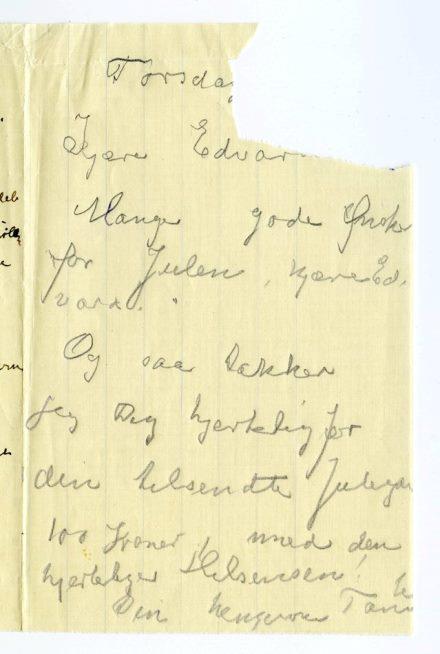 Torsda
Kjære Edvar
Mange gode Ønsker
for Julen, kjære Ed-
vard.
Og saa takker
jeg Dig hjertelig for
den tilsendte Julega
100 Kroner, med den
hjerteligste Hilsensen!
Din hengivne Tan